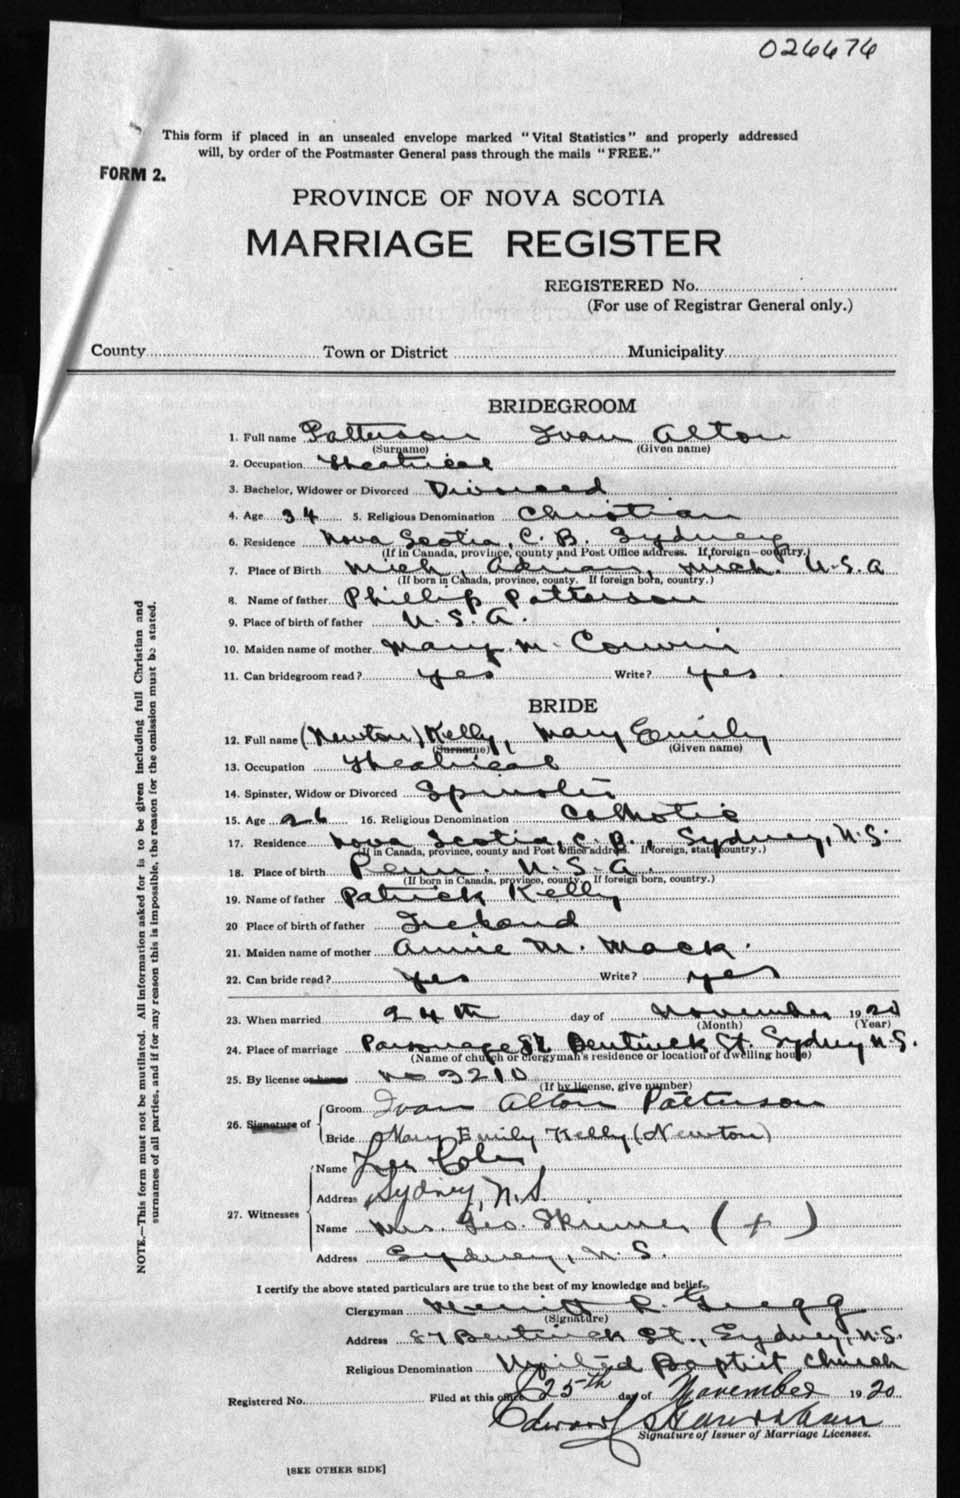 026676
This form if placed in an unsealed envelope marked "Vital Statistics" and properly addressed
will, by order of the Postmaster General pass through the mails "FREE."
FORM 2.
PROVINCE OF NOVA SCOTIA
MARRIAGE REGISTER
REGISTERED No.
(For use of Registrar General only.)
County Town or District Municipality
BRIDEGROOM
1. Full name Patterson Ivan Alton
(Surname) (Given name)
2. Occupation Theatrical
3. Bachelor, Widower or Divorced Divorced
4. Age 34 5. Religious Denomination Christian
6. Residence Nova Scotia, C.B. Sydney
(If in Canada, province, county and Post Office address. If foreign—country.)
7. Place of Birth Mich, Adrian, Mich. U.S.A
(If born in Canada, province, county. If foreign born, country.)
8. Name of father Phillip Patterson
9. Place of birth of father U.S.A.
10. Maiden name of mother Mary M. Corwin
11. Can bridegroom read? yes Write? yes
BRIDE
12. Full name (Newton) Kelly, Mary Emily
(Surname) (Given name)
13. Occupation Theatrical
14. Spinster, Widow or Divorced Spinster
15. Age 26 16. Religious Denomination Catholic
17. Residence Nova Scotia, C.B., Sydney, N.S.
(If in Canada, province, county and Post Office address. If foreign, state country.)
18. Place of birth Penn. U.S.A.
(If born in Canada, province, county. If foreign born, country.)
19. Name of father Patrick Kelly
20 Place of birth of father Ireland
21. Maiden name of mother Annie M. Mack.
22. Can bride read? yes Write? yes
23. When married 24th day of November 1920
(Month) (Year)
24. Place of marriage Parsonage 82 Bentinck St. Sydney N.S.
(Name of church or clergyman's residence or location of dwelling house)
25. By license or banns No 3210
(If by license, give number)
26. Signature of Groom Ivan Alton Patterson
Bride Mary Emily Kelly (Newton)
27. Witnesses
Name
Address Sydney, N.S.
Name Mrs. Geo. Skinner (+)
Address Sydney, N.S.
I certify the above stated particulars are true to the best of my knowledge and belief.
Clergyman Merritt R. Gregg
(Signature)
Address Bentinck St., Sydney, N.S.
Religious Denomination United Baptist Church
Registered No. Filed at this office 25th day of November 1920
Edward
Signature of Issuer of Marriage Licenses.
[SEE OTHER SIDE]
NOTE.—This form must not be mutilated. All information asked for is to be given including full Christian and
surnames of all parties, and if for any reason this is impossible, the reason for the omission must be stated.